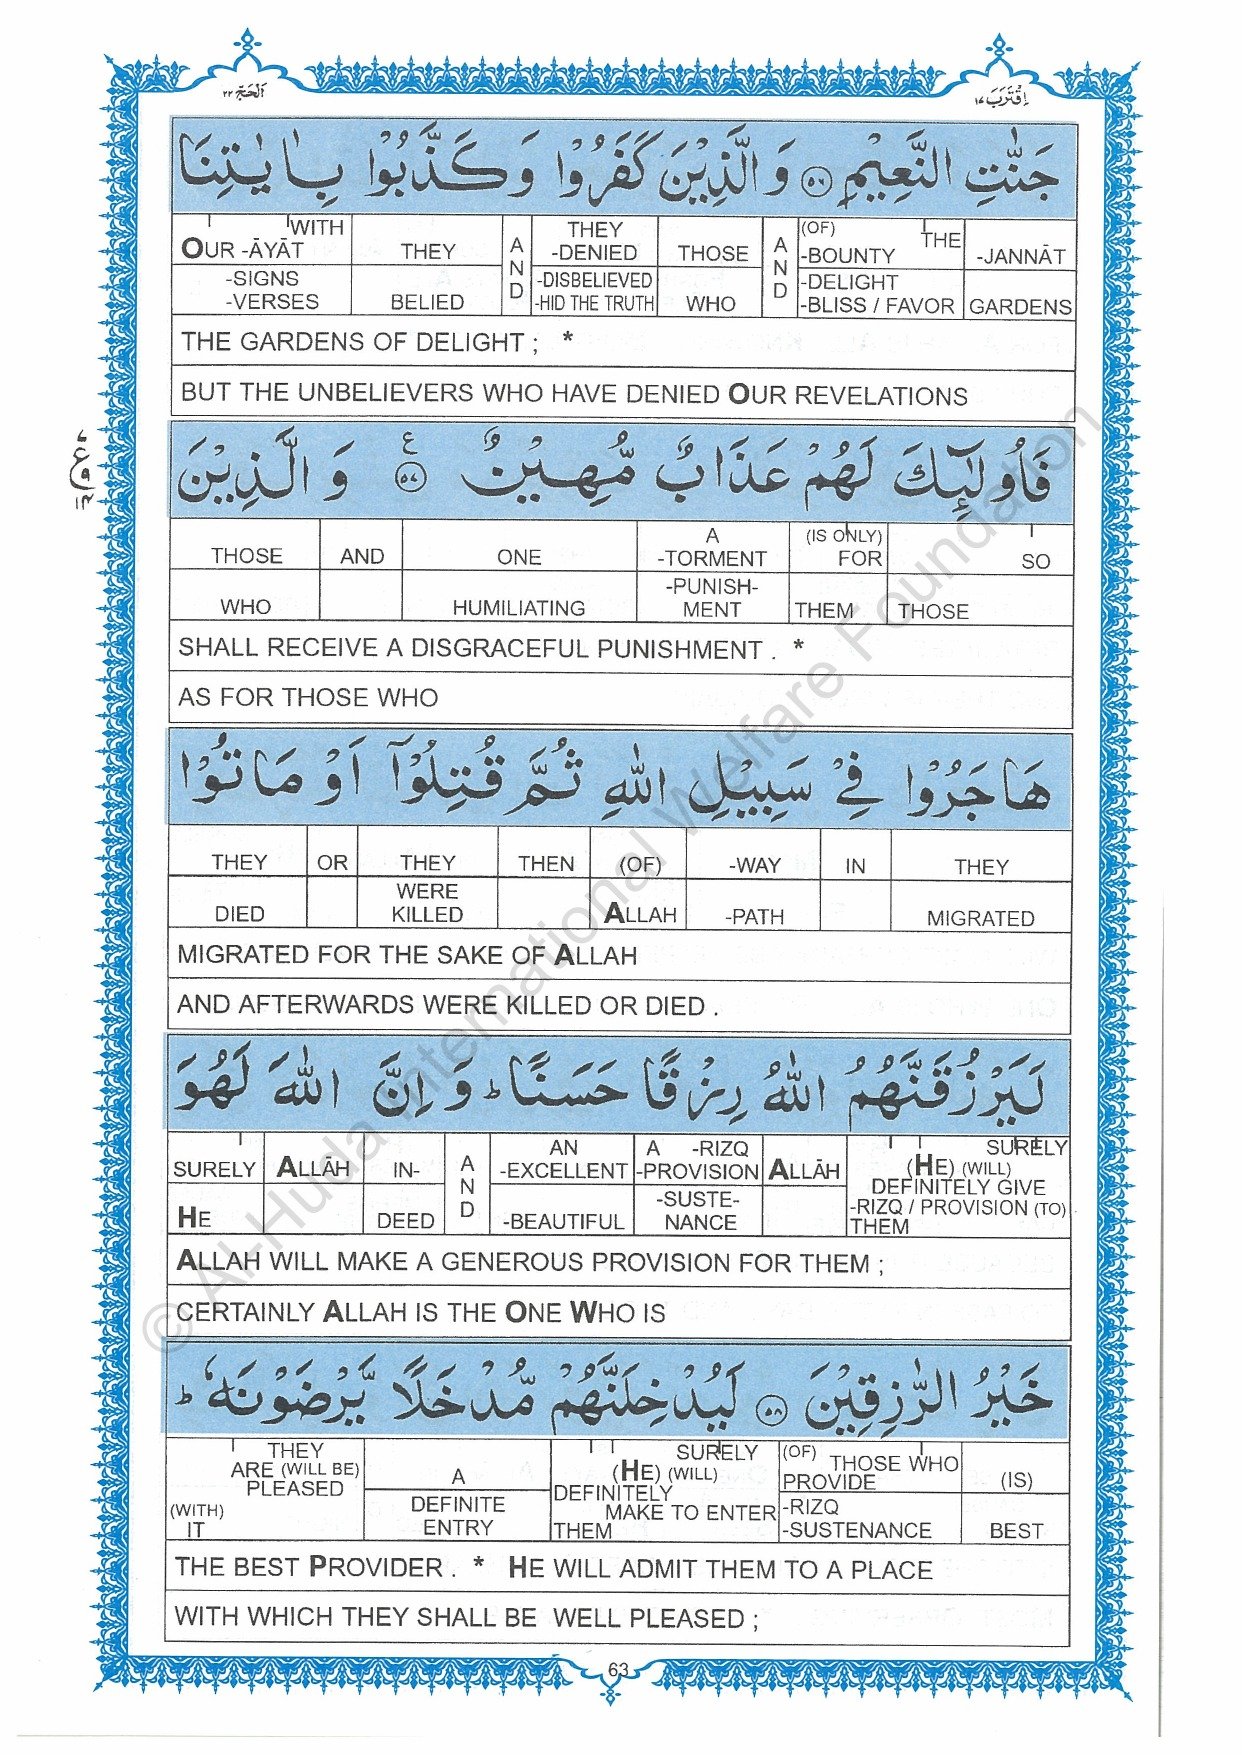 اَلْحَجّ ٢٢
اِقْتَرَبَ ١٧
جَنّٰتِ النَّعِيْمِ ٥٦ وَ الَّذِيْنَ كَفَرُوْا وَ كَذَّبُوْا بِاٰيٰتِنَا
WITH OUR -ĀYĀT -SIGNS -VERSES | THEY BELIED | AND | THEY -DENIED -DISBELIEVED -HID THE TRUTH | THOSE WHO | AND | (OF) THE -BOUNTY -DELIGHT -BLISS / FAVOR | -JANNĀT GARDENS
THE GARDENS OF DELIGHT ; *
BUT THE UNBELIEVERS WHO HAVE DENIED OUR REVELATIONS
فَاُولٰٓئِكَ لَهُمْ عَذَابٌ مُّهِيْنٌ ٥٧ ع وَ الَّذِيْنَ
ع ٩ ١٤
THOSE WHO | AND | ONE HUMILIATING | A -TORMENT -PUNISH-MENT | (IS ONLY) FOR THEM | SO THOSE
SHALL RECEIVE A DISGRACEFUL PUNISHMENT . *
AS FOR THOSE WHO
هَاجَرُوْا فِيْ سَبِيْلِ اللّٰهِ ثُمَّ قُتِلُوْٓا اَوْ مَاتُوْا
THEY DIED | OR | THEY WERE KILLED | THEN | (OF) ALLAH | -WAY -PATH | IN | THEY MIGRATED
MIGRATED FOR THE SAKE OF ALLAH
AND AFTERWARDS WERE KILLED OR DIED .
لَيَرْزُقَنَّهُمُ اللّٰهُ رِزْقًا حَسَنًا ط وَ اِنَّ اللّٰهَ لَهُوَ
SURELY HE | ALLĀH | IN-DEED | AND | AN -EXCELLENT -BEAUTIFUL | A -RIZQ -PROVISION -SUSTE-NANCE | ALLĀH | SURELY (HE) (WILL) DEFINITELY GIVE -RIZQ / PROVISION (TO) THEM
ALLAH WILL MAKE A GENEROUS PROVISION FOR THEM ;
CERTAINLY ALLAH IS THE ONE WHO IS
خَيْرُ الرّٰزِقِيْنَ ٥٨ لَيُدْخِلَنَّهُمْ مُّدْخَلًا يَّرْضَوْنَهٗ ط
THEY ARE (WILL BE) PLEASED (WITH) IT | A DEFINITE ENTRY | SURELY (HE) (WILL) DEFINITELY MAKE TO ENTER THEM | (OF) THOSE WHO PROVIDE -RIZQ -SUSTENANCE | (IS) BEST
THE BEST PROVIDER . * HE WILL ADMIT THEM TO A PLACE
WITH WHICH THEY SHALL BE WELL PLEASED ;
63
© Al-Huda International Welfare Foundation